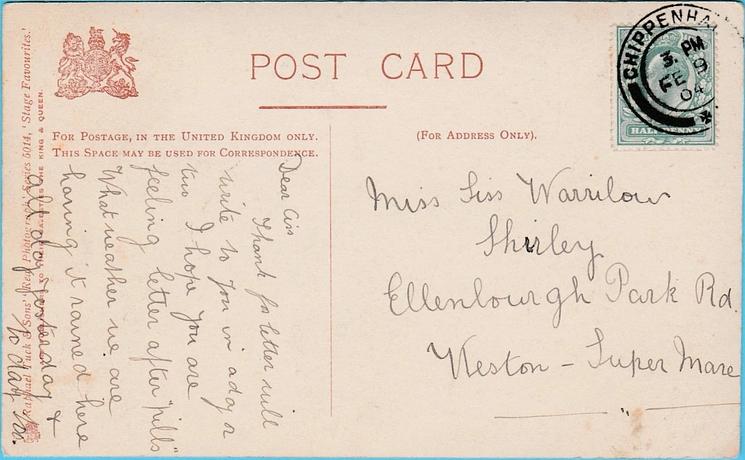 POST CARD
FOR POSTAGE, IN THE UNITED KINGDOM ONLY.
THIS SPACE MAY BE USED FOR CORRESPONDENCE.
(FOR ADDRESS ONLY).
CHIPPENHA
3. PM
FE 9
04
HALFPENNY
Miss Siss Warrilow
Shirley
Ellenbourgh Park Rd.
Weston - Super Mare
Dear Ciss
Thank for letter will
write to you in a day or
two I hope you are
feeling better after "pills"
What weather we are
having it rained here
all day yesterday &
to day.
Raphael Tuck & Sons' "Real Photograph" Series 5014, 'Stage Favourites.'
TO THE KING & QUEEN.